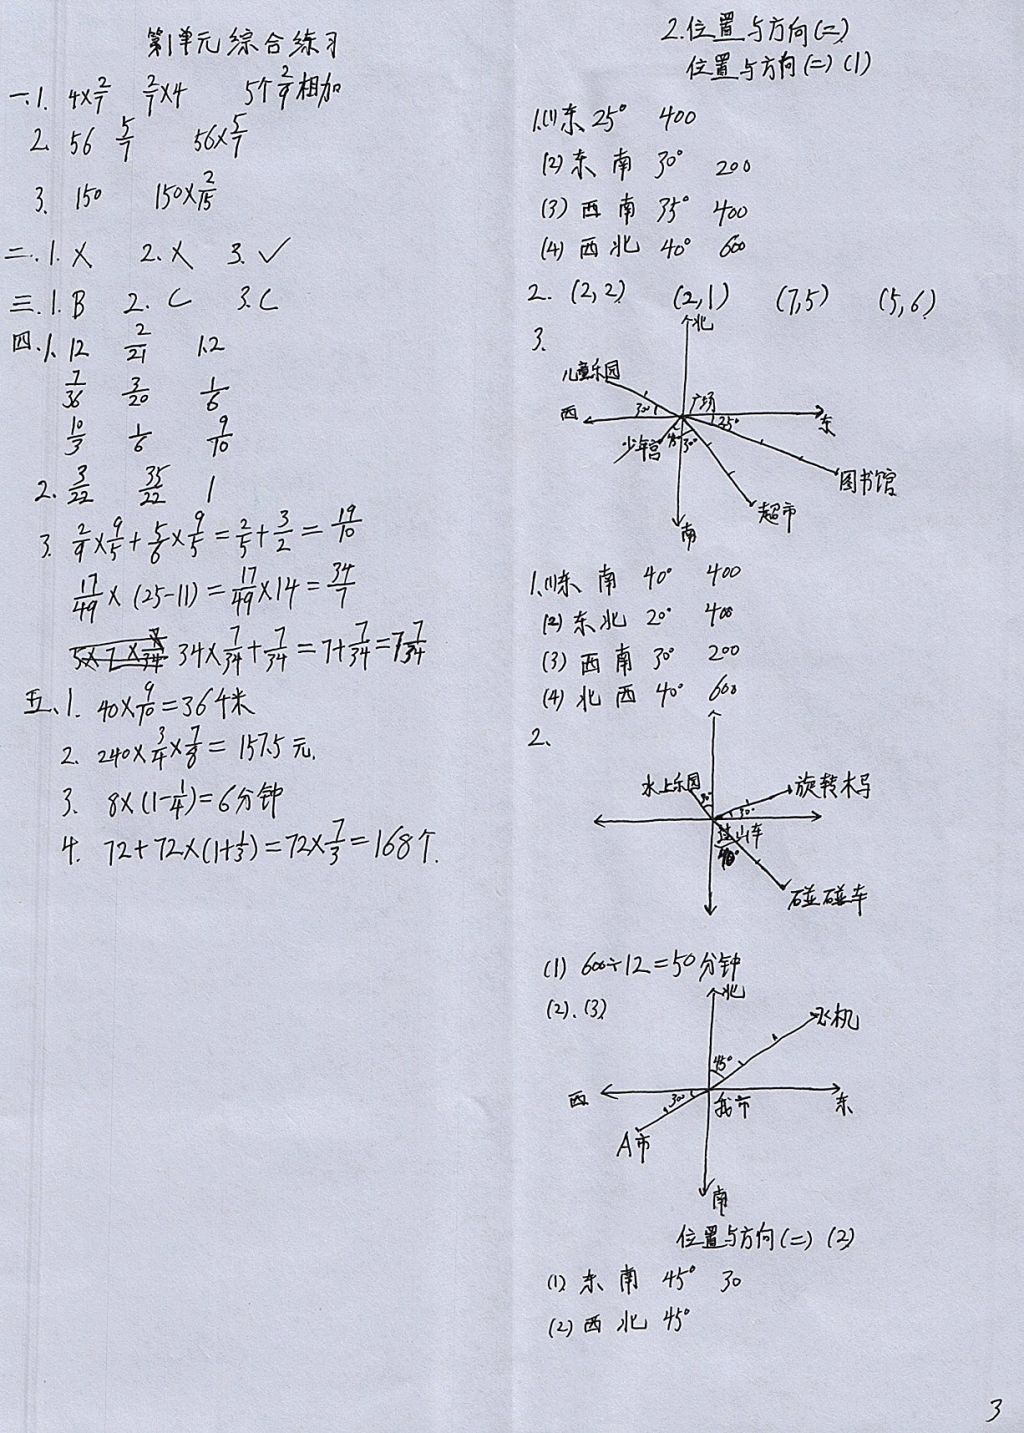 第1单元综合练习
一.1. 4×2/7 2/7×4 5个2/9相加
2. 56 5/7 56×5/7
3. 150 150×2/15
二.1. × 2. × 3. ✓
三.1. B 2. C 3. C
四.1. 12 2/21 1.2
7/36 3/20 1/6
10/3 1/6 9/10
2. 3/22 35/22 1
3. 2/9×9/5+5/6×9/5=2/5+3/2=19/10
17/49×(25-11)=17/49×14=34/7
34×7/34+7/34=7+7/34=7 7/34
五.1. 40×9/10=36千米
2. 240×3/4×7/8=157.5元.
3. 8×(1-1/4)=6分钟
4. 72+72×(1+1/3)=72×7/3=168个.
2.位置与方向(二)
位置与方向(二)(1)
1.(1)东 25° 400
(2)东 南 30° 200
(3)西 南 35° 400
(4)西 北 40° 600
2. (2,2) (2,1) (7,5) (5,6)
3.
北
儿童乐园
30°
广场
西
东
25°
少年宫
45°
30°
图书馆
超市
南
1.(1)东 南 40° 400
(2)东 北 20° 400
(3)西 南 30° 200
(4)北 西 40° 600
2.
水上乐园
旋转木马
30°
30°
过山车
碰碰车
(1) 600÷12=50分钟
(2)、(3)
北
飞机
45°
西
30°
我市
东
A市
南
位置与方向(二)(2)
(1) 东 南 45° 30
(2) 西 北 45°
3